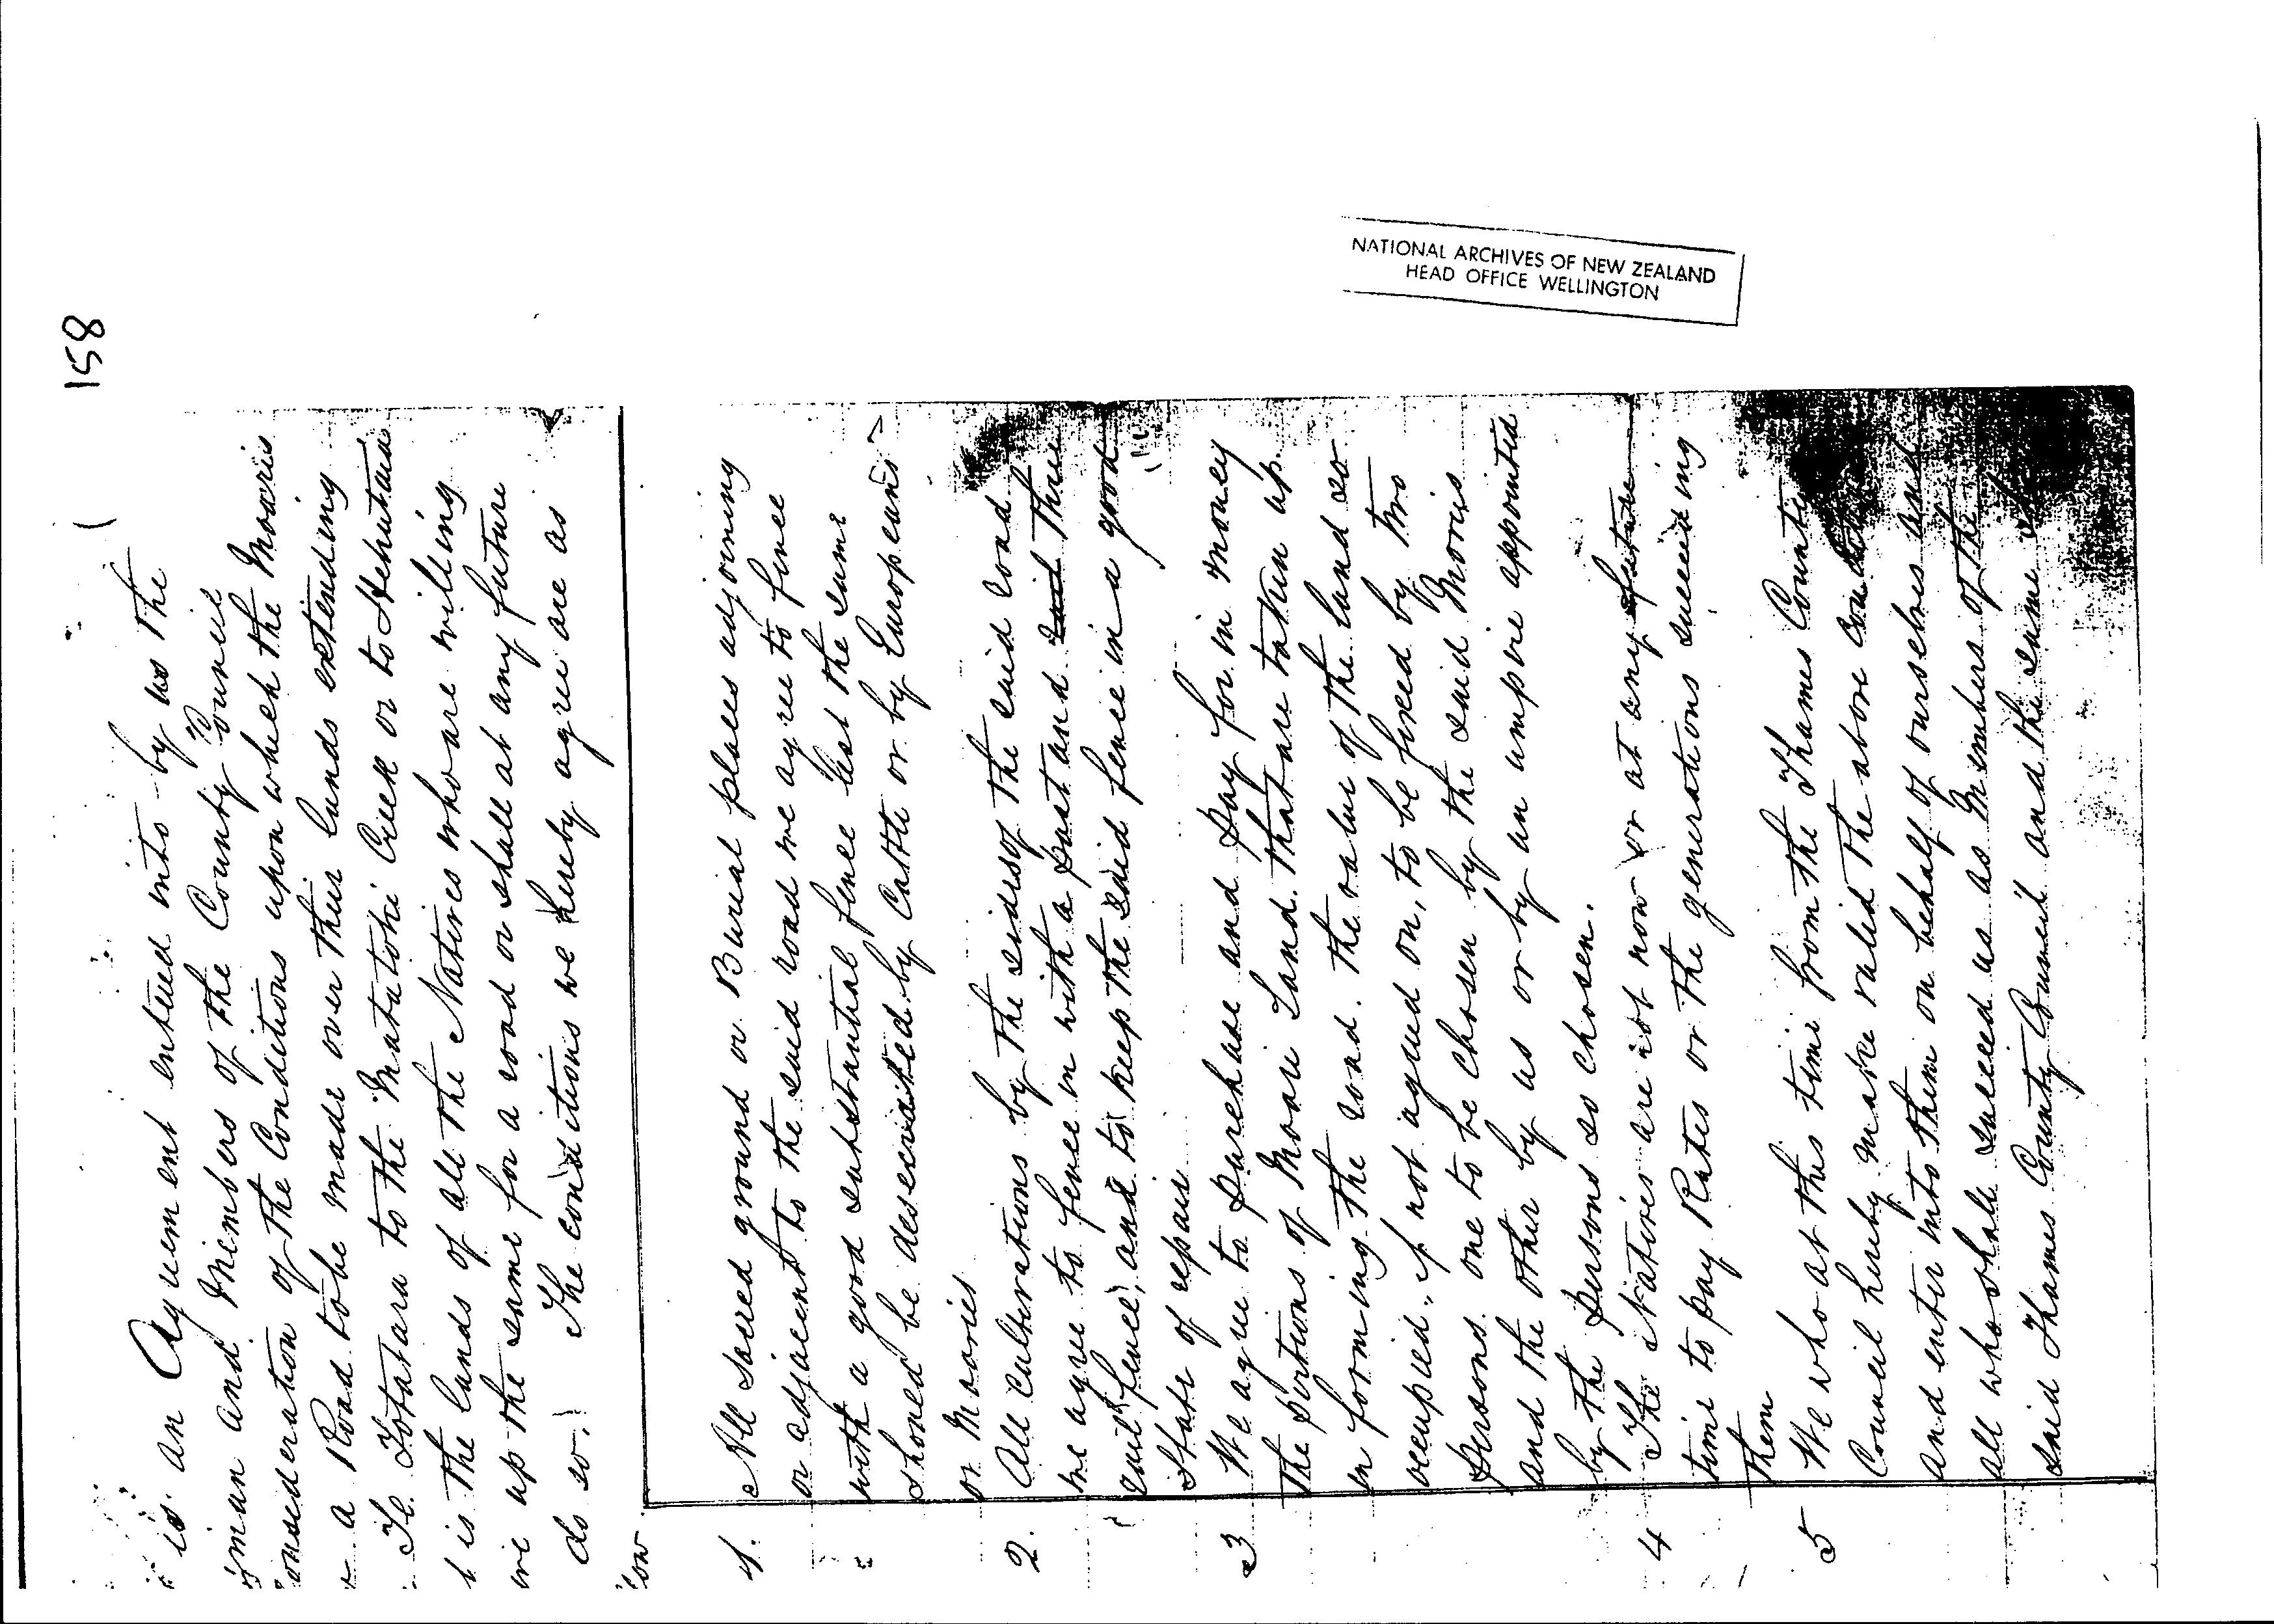 158
is an Agreement entered into by us the
man and Members of the County Council
onsederation of the Conditions upon which the Maoris
a Road to be made over their lands extending
Te Totatara to the Matatoki Creek or to Hehutaua
is the lands of all the Natives who are willing
ive up the same for a road or shall at any future
do so. The conditions we hereby agree are as
low
1. All Sacred ground or Burial places adjoining
or adjacent to the said road we agree to fence
with a good substantial fence lest the same
should be desecrated by Cattle or by Europeans
or Maories
2. All cultivations by the sides of the said road
we agree to fence in with a post and rail three
rail fence, and to keep the said fence in a good
State of repair
3 We agree to purchase and pay for in money
the portions of Maori Land that are taken up
in forming the road. the value of the land so
occupied, if not agreed on, to be fixed by two
persons. one to be chosen by the said Maoris
and the other by us or by an umpire appointed
by the persons so chosen.
4 The Natives are not now or at any future
time to pay Rates or the generations succeeding
them
5 We who at this time from the Thames County
Council hereby make valid the above conditions
and enter into them on behalf of ourselves and
all who shall succeed us as Members of the
said Thames County Council and the same
NATIONAL ARCHIVES OF NEW ZEALAND
HEAD OFFICE WELLINGTON